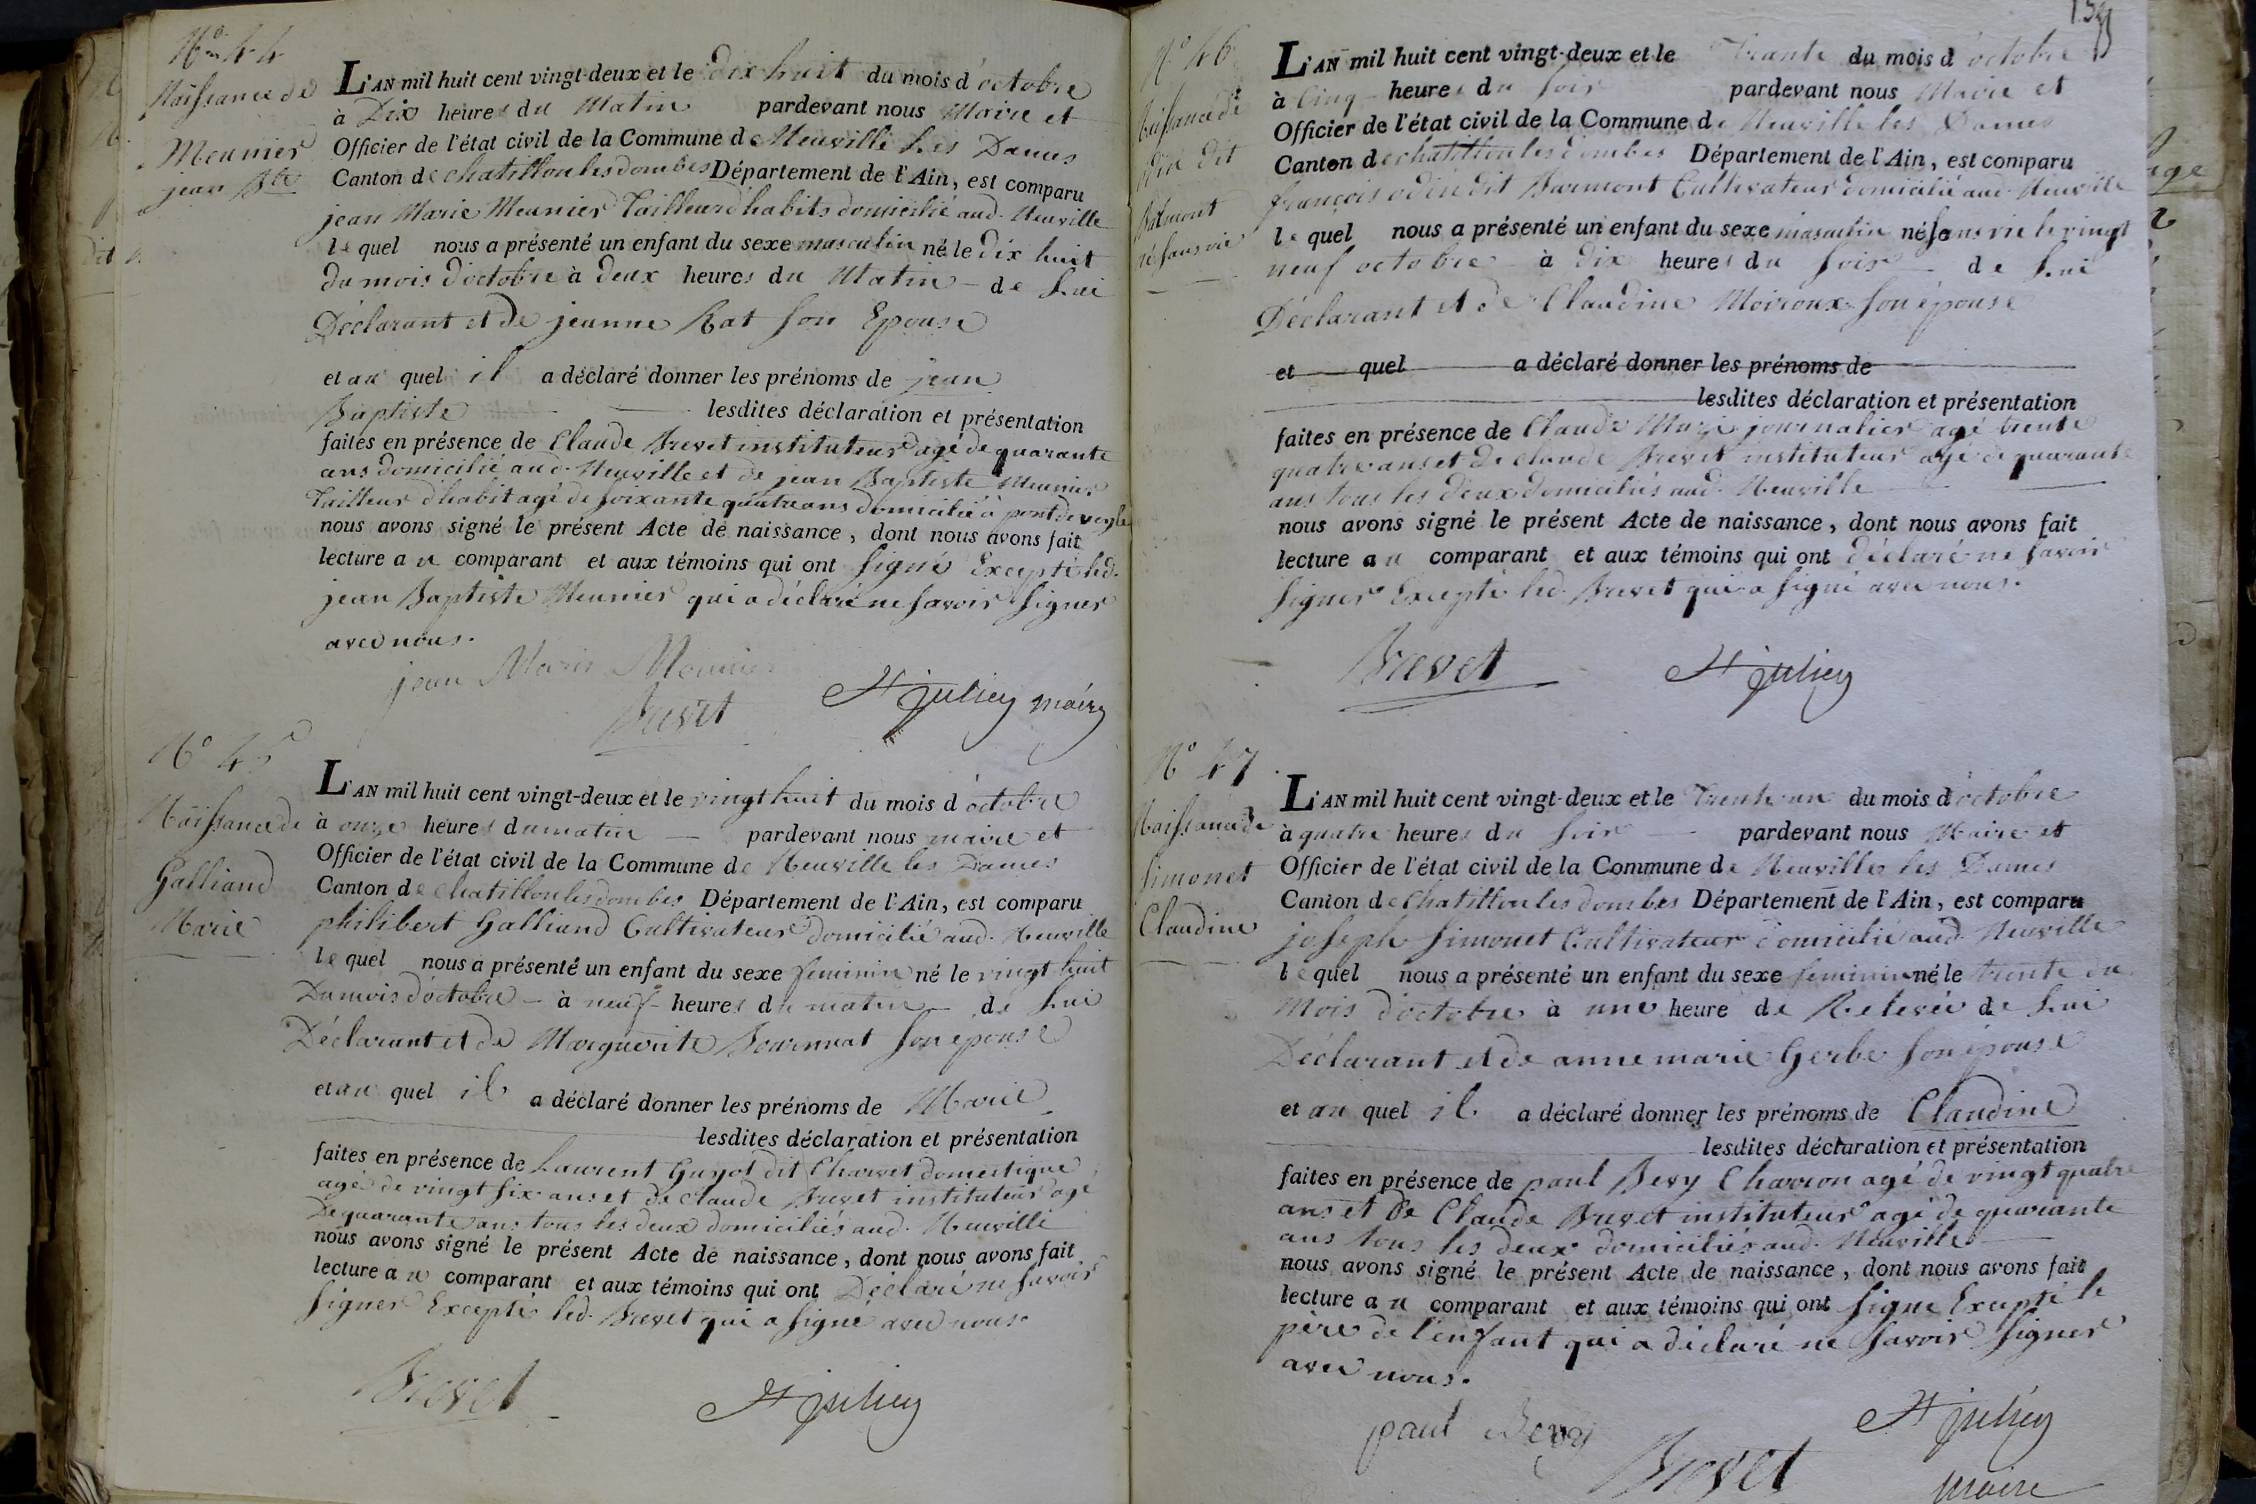 N° 44
Naissance de
Meunier
jean Bte
L'AN mil huit cent vingt-deux et le dix huit du mois d'octobre
à Dix heures du Matin pardevant nous Maire et
Officier de l'état civil de la Commune de Neuville Les Dames
Canton de chatillon les dombes Département de l'Ain, est comparu
jean Marie Meunier Tailleur d'habits domicilié aud. Neuville
lequel nous a présenté un enfant du sexe masculin né le dix huit
du mois d'octobre à deux heures du Matin de Lui
Déclarant et de jeanne Rat son Epouse
et au quel il a déclaré donner les prénoms de jean
Baptiste lesdites déclaration et présentation
faites en présence de Claude Brevet instituteur agé de quarante
ans domicilié aud. Neuville et de jean Baptiste Meunier
Tailleur d'habit agé de soixante quatre ans domicilié à pont de veyle
nous avons signé le présent Acte de naissance, dont nous avons fait
lecture au comparant et aux témoins qui ont signé Excepté led.
jean Baptiste Meunier qui a déclaré ne savoir signer
avec nous.
jean Marie Meunier
Brevet St julien maire
N° 45
Naissance de
Galliand
Marie
L'AN mil huit cent vingt-deux et le vingt huit du mois d'octobre
à onze heures du matin pardevant nous maire et
Officier de l'état civil de la Commune de Neuville les Dames
Canton de chatillon les dombes Département de l'Ain, est comparu
philibert Galliand Cultivateur domicilié aud. Neuville
lequel nous a présenté un enfant du sexe feminin né le vingt huit
Du mois d'octobre à neuf heures du matin de Lui
Déclarant et de Marguerite Bournat son epouse
et au quel il a déclaré donner les prénoms de Marie
lesdites déclaration et présentation
faites en présence de Laurent Guyot dit Charvet domestique
agé de vingt six ans et de claude Brevet instituteur agé
De quarante ans tous les deux domiciliés aud. Neuville
nous avons signé le présent Acte de naissance, dont nous avons fait
lecture au comparant et aux témoins qui ont Déclaré ne savoir
signer Excepté led. Brevet qui a signé avec nous.
Brevet St julien
N° 46
Naissance de
odin dit
Barmont
né sans vie
L'AN mil huit cent vingt-deux et le Trente du mois d'octobre
à Cinq heures du soir pardevant nous Maire et
Officier de l'état civil de la Commune de Neuville les Dames
Canton de chatillon les dombes Département de l'Ain, est comparu
françois odin dit Barmont Cultivateur domicilié aud. Neuville
lequel nous a présenté un enfant du sexe masculin né sans vie le vingt
neuf octobre à dix heures du soir de Lui
Déclarant et de Claudine Moiroux son épouse
et quel a déclaré donner les prénoms de
lesdites déclaration et présentation
faites en présence de Claude journalier agé trente
quatre ans et de claude Brevet instituteur agé de quarante
ans tous les deux domiciliés aud. Neuville
nous avons signé le présent Acte de naissance, dont nous avons fait
lecture au comparant et aux témoins qui ont déclaré ne savoir
signer Excepté led. Brevet qui a signé avec nous.
Brevet St julien
N° 47
Naissance de
Simonet
Claudine
L'AN mil huit cent vingt-deux et le Trente un du mois d'octobre
à quatre heures du soir pardevant nous Maire et
Officier de l'état civil de la Commune de Neuville les Dames
Canton de Chatillon les dombes Département de l'Ain, est comparu
joseph Simonet Cultivateur domicilié aud. Neuville
lequel nous a présenté un enfant du sexe feminin né le trente du
Mois d'octobre à une heure de Relevée de Lui
Déclarant et de anne marie Gerbe son épouse
et au quel il a déclaré donner les prénoms de Claudine
lesdites déclaration et présentation
faites en présence de paul Bevy Charron agé de vingt quatre
ans et De Claude Brevet instituteur agé de quarante
ans tous les deux domiciliés aud. Neuville
nous avons signé le présent Acte de naissance, dont nous avons fait
lecture au comparant et aux témoins qui ont signé Excepté le
père de l'enfant qui a déclaré ne savoir signer
avec nous.
paul Bevy St julien
Brevet maire